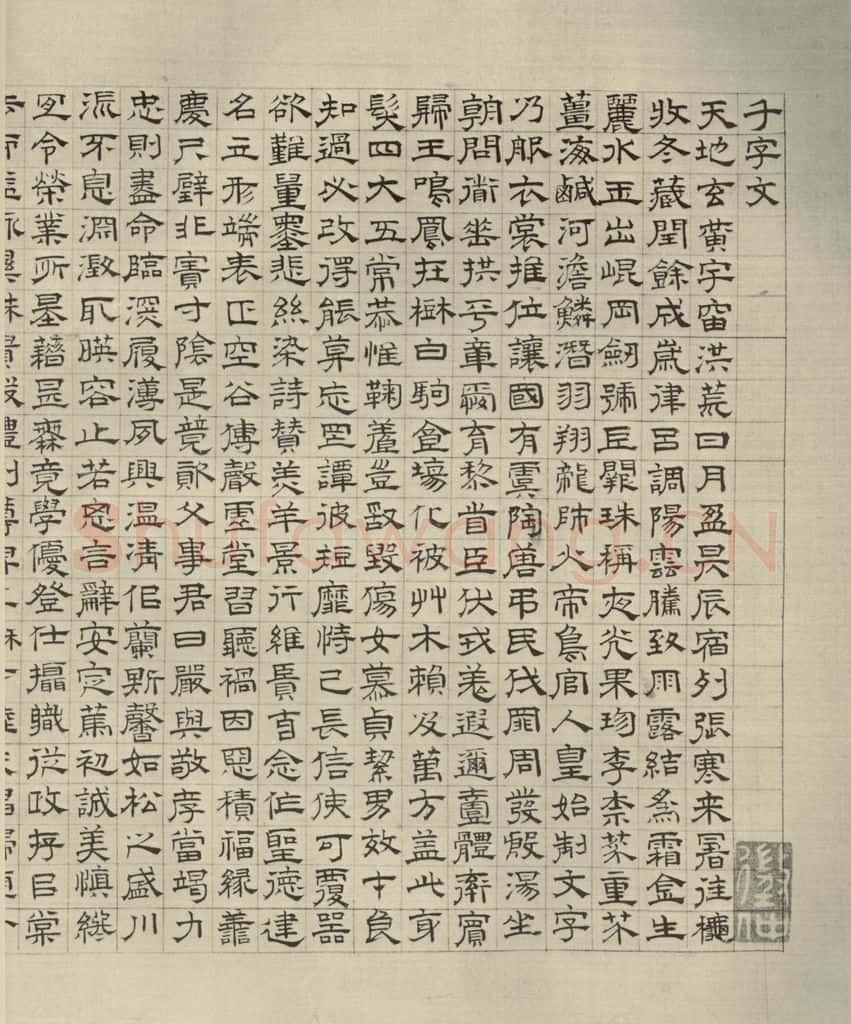 千字文
天地玄黄宇宙洪荒日月盈昃辰宿列張寒来暑往龝
收冬藏閏餘成歲律吕調陽雲騰致雨露結為霜金生
麗水玉出崐岡劒號巨闕珠稱夜光果珎李柰菜重芥
薑海鹹河澹鱗潛羽翔龍師火帝鳥官人皇始制文字
乃服衣裳推位讓國有虞陶唐弔民伐罪周發殷湯坐
朝問道垂拱平章愛育黎首臣伏戎羌遐邇壹體率賓
歸王鳴鳳在樹白駒食塲化被艸木賴及萬方盖此身
髮四大五常恭惟鞠養豈敢毀傷女慕貞絜男效才良
知過必改得能莫忘罔譚彼短靡恃己長信使可覆器
欲難量墨悲絲染詩賛羔羊景行維賢克念作聖德建
名立形端表正空谷傳聲虚堂習聽禍因惡積福緣善
慶尺璧非寶寸陰是競資父事君曰嚴與敬孝當竭力
忠則盡命臨深履薄夙興温凊似蘭斯馨如松之盛川
流不息淵澂取暎容止若思言辭安定篤初誠美慎終
宜令榮業所基藉甚無竟學優登仕攝職從政存㠯棠
shufawang.CN